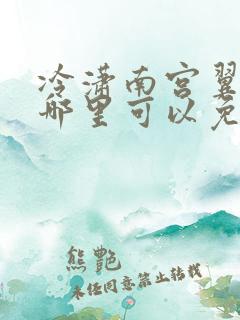 冷潇南宫翼
哪里可以免
熊艷
未经同意禁止转载